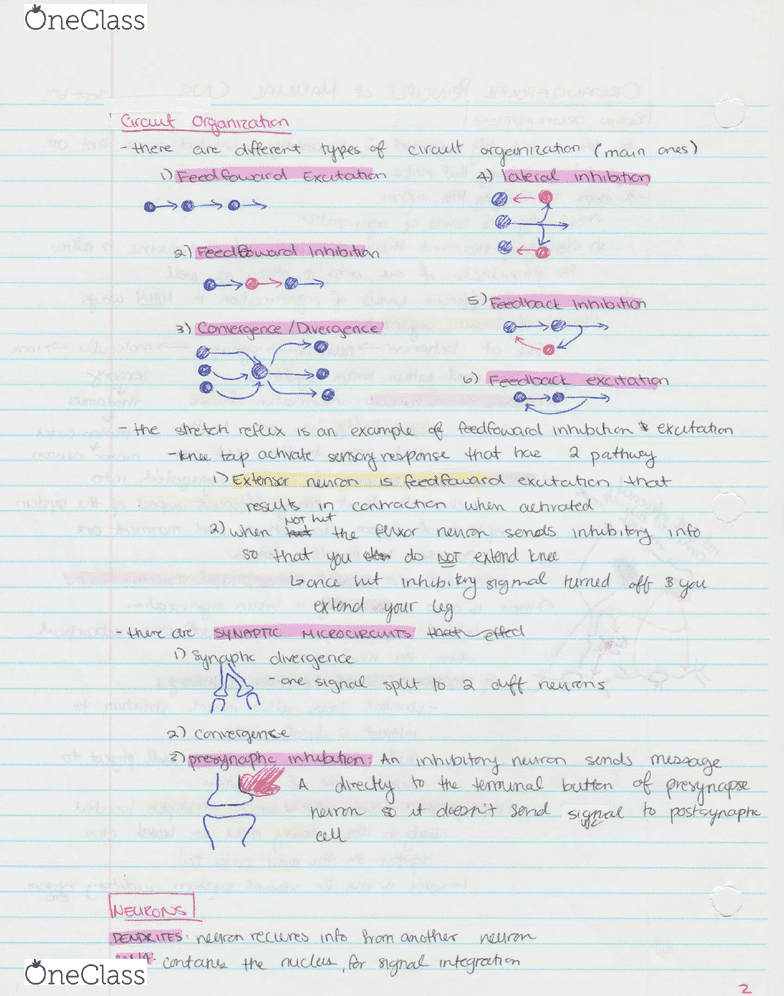 OneClass
Circuit Organization
- there are different types of circuit organization (main ones)
1) Feedfoward Excitation
4) lateral inhibition
2) Feedfoward Inhibition
5) Feedback Inhibition
3) Convergence/Divergence
6) Feedback excitation
- the stretch reflex is an example of feedfoward inhibition & excitation
- knee tap activate sensory response that has 2 pathway
1) Extensor neuron is feedfoward excitation that
results in contraction when activated
NOT hit
2) when the fluxor neuron sends inhibitory info
so that you do NOT extend knee
↳ once hit inhibitory signal turned off & you
extend your leg
- there are SYNAPTIC MICROCIRCUITS that effect
1) Synaptic divergence
- one signal split to 2 diff neurons
2) convergense
3) presynaptic inhibation: An inhibitory neuron sends message
A directly to the terminal button of presynapse
neuron so it doesn't send signal to postsynaptic
cell
NEURONS
DENDRITES: neuron recieves info from another neuron
SOMA: contains the nucleus, for signal integration
OneClass
2